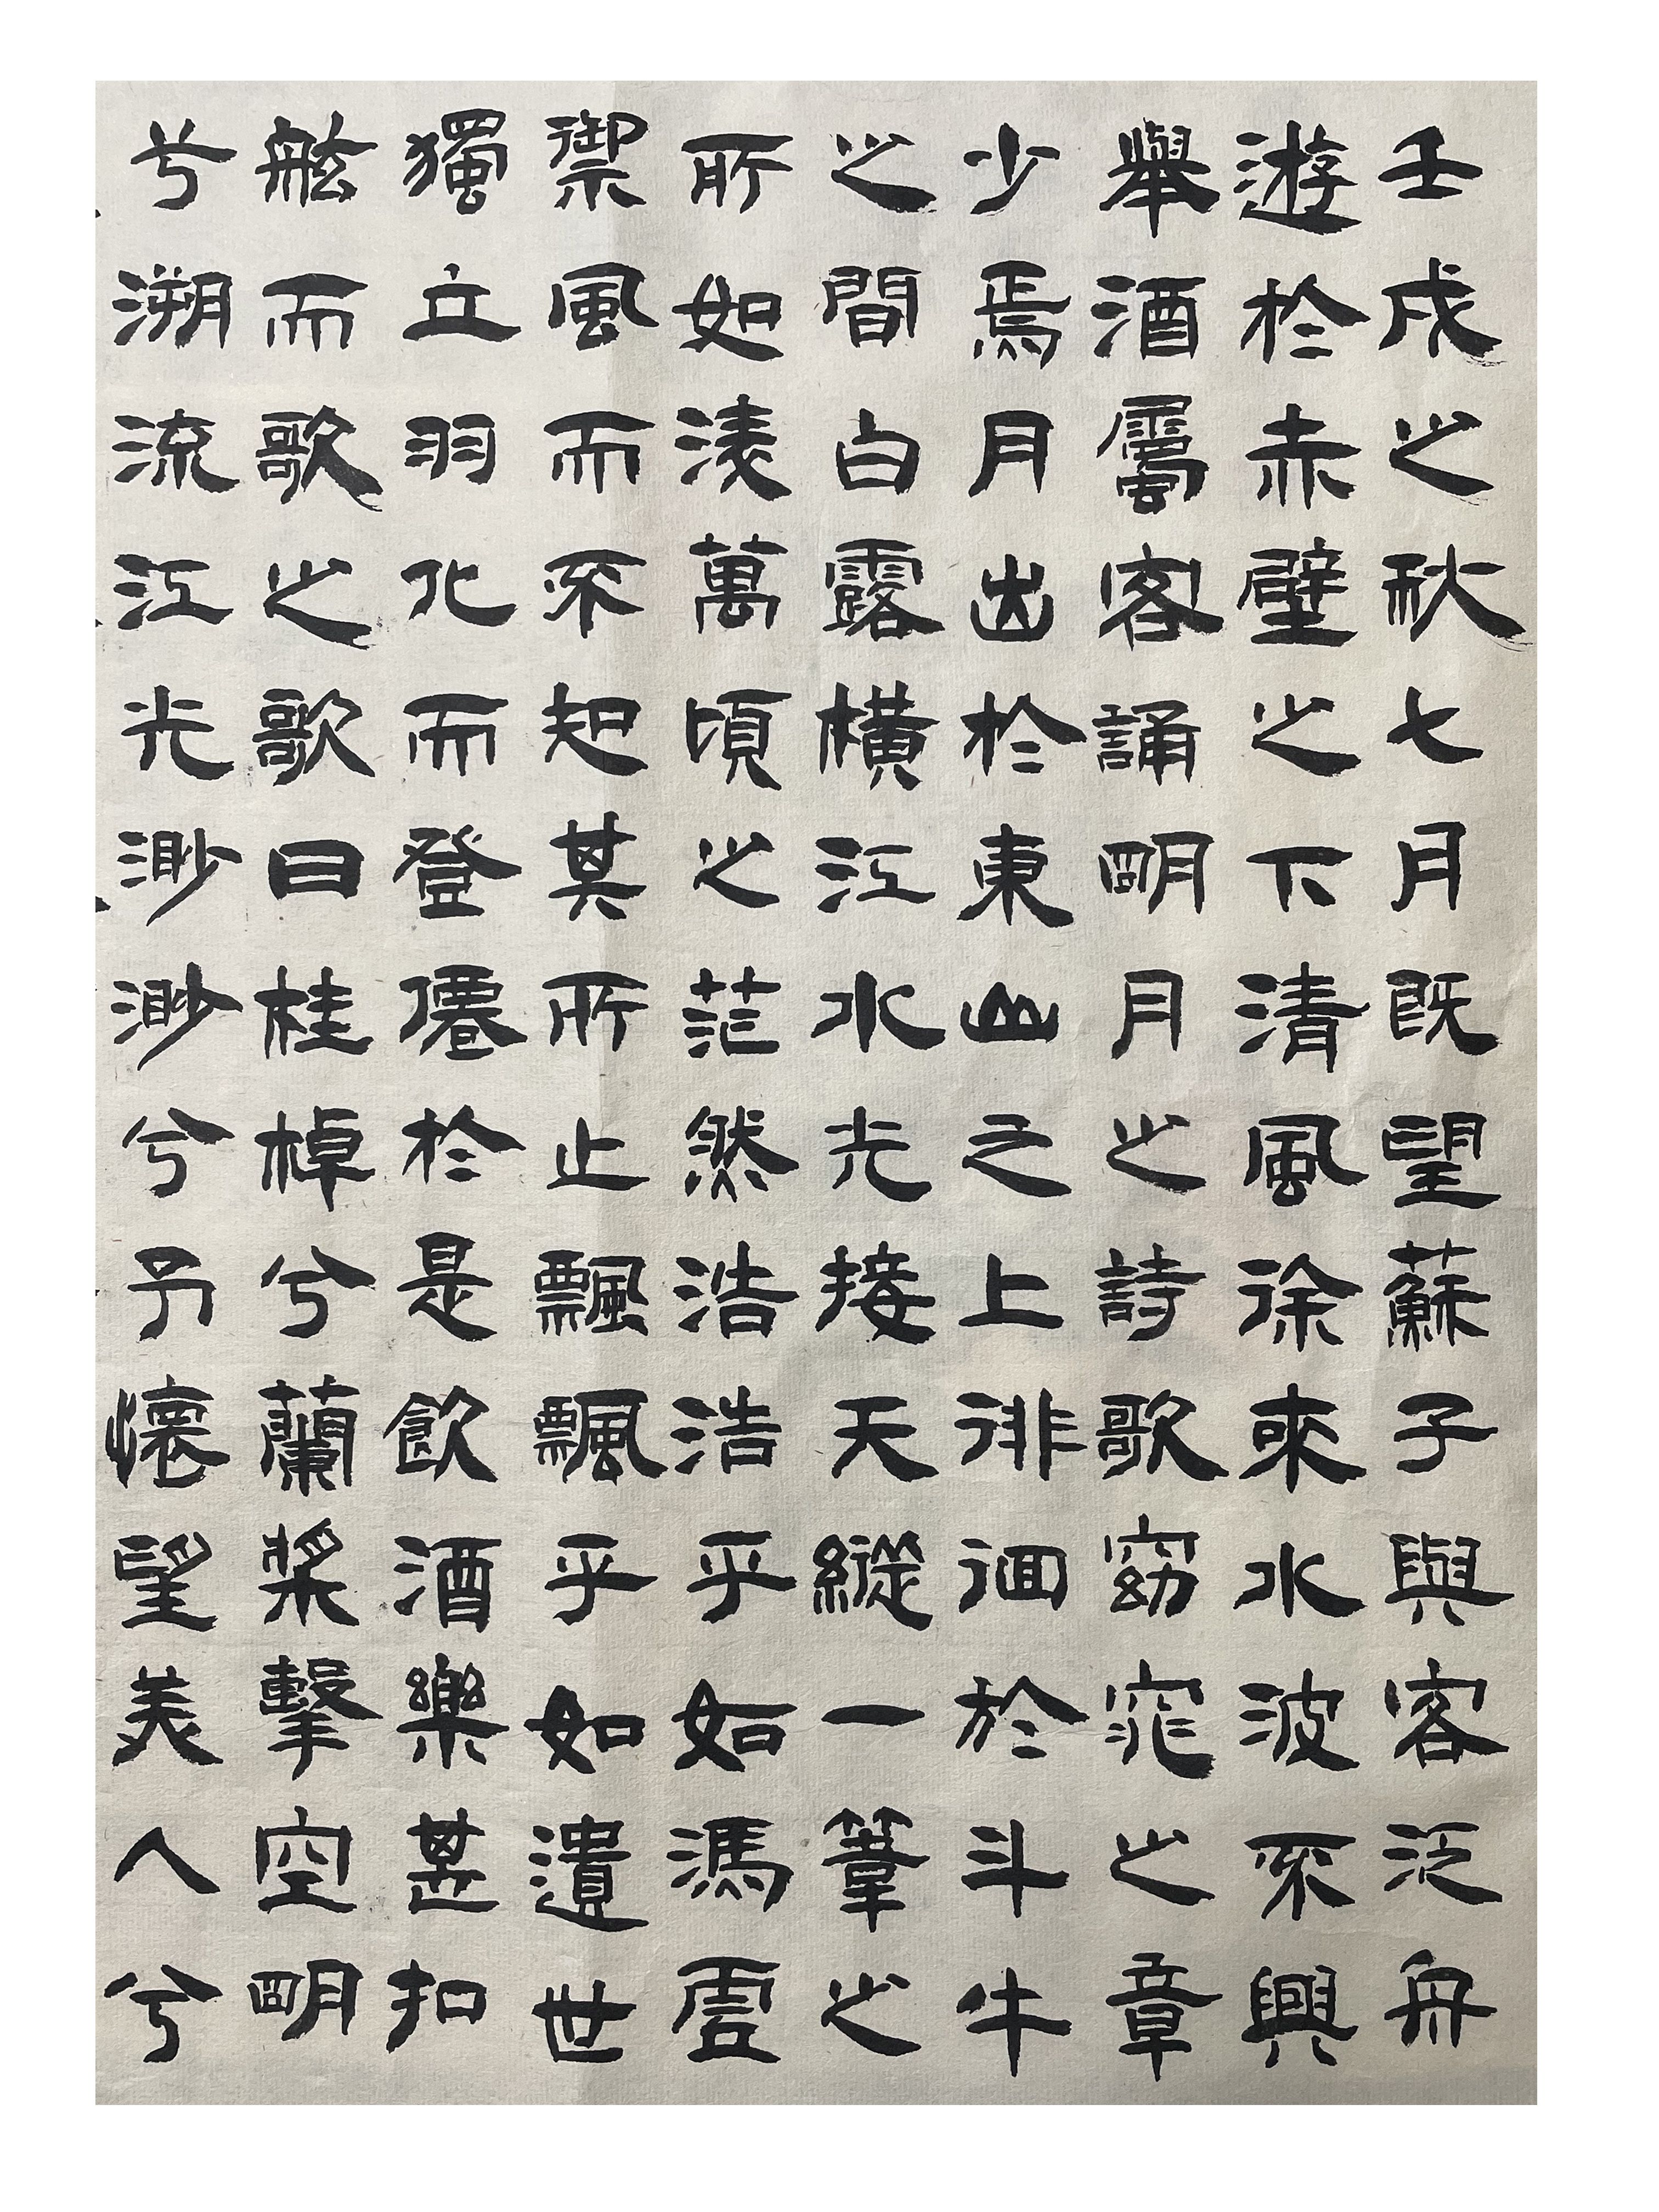 壬戌之秋七月既望蘇子與客泛舟
遊於赤壁之下清風徐來水波不興
舉酒屬客誦明月之詩歌窈窕之章
少焉月出於東山之上徘徊於斗牛
之間白露橫江水光接天縱一葦之
所如淩萬頃之茫然浩浩乎如馮虛
禦風而不知其所止飄飄乎如遺世
獨立羽化而登僊於是飲酒樂甚扣
舷而歌之歌曰桂棹兮蘭槳擊空明
兮溯流江光渺渺兮予懷望美人兮